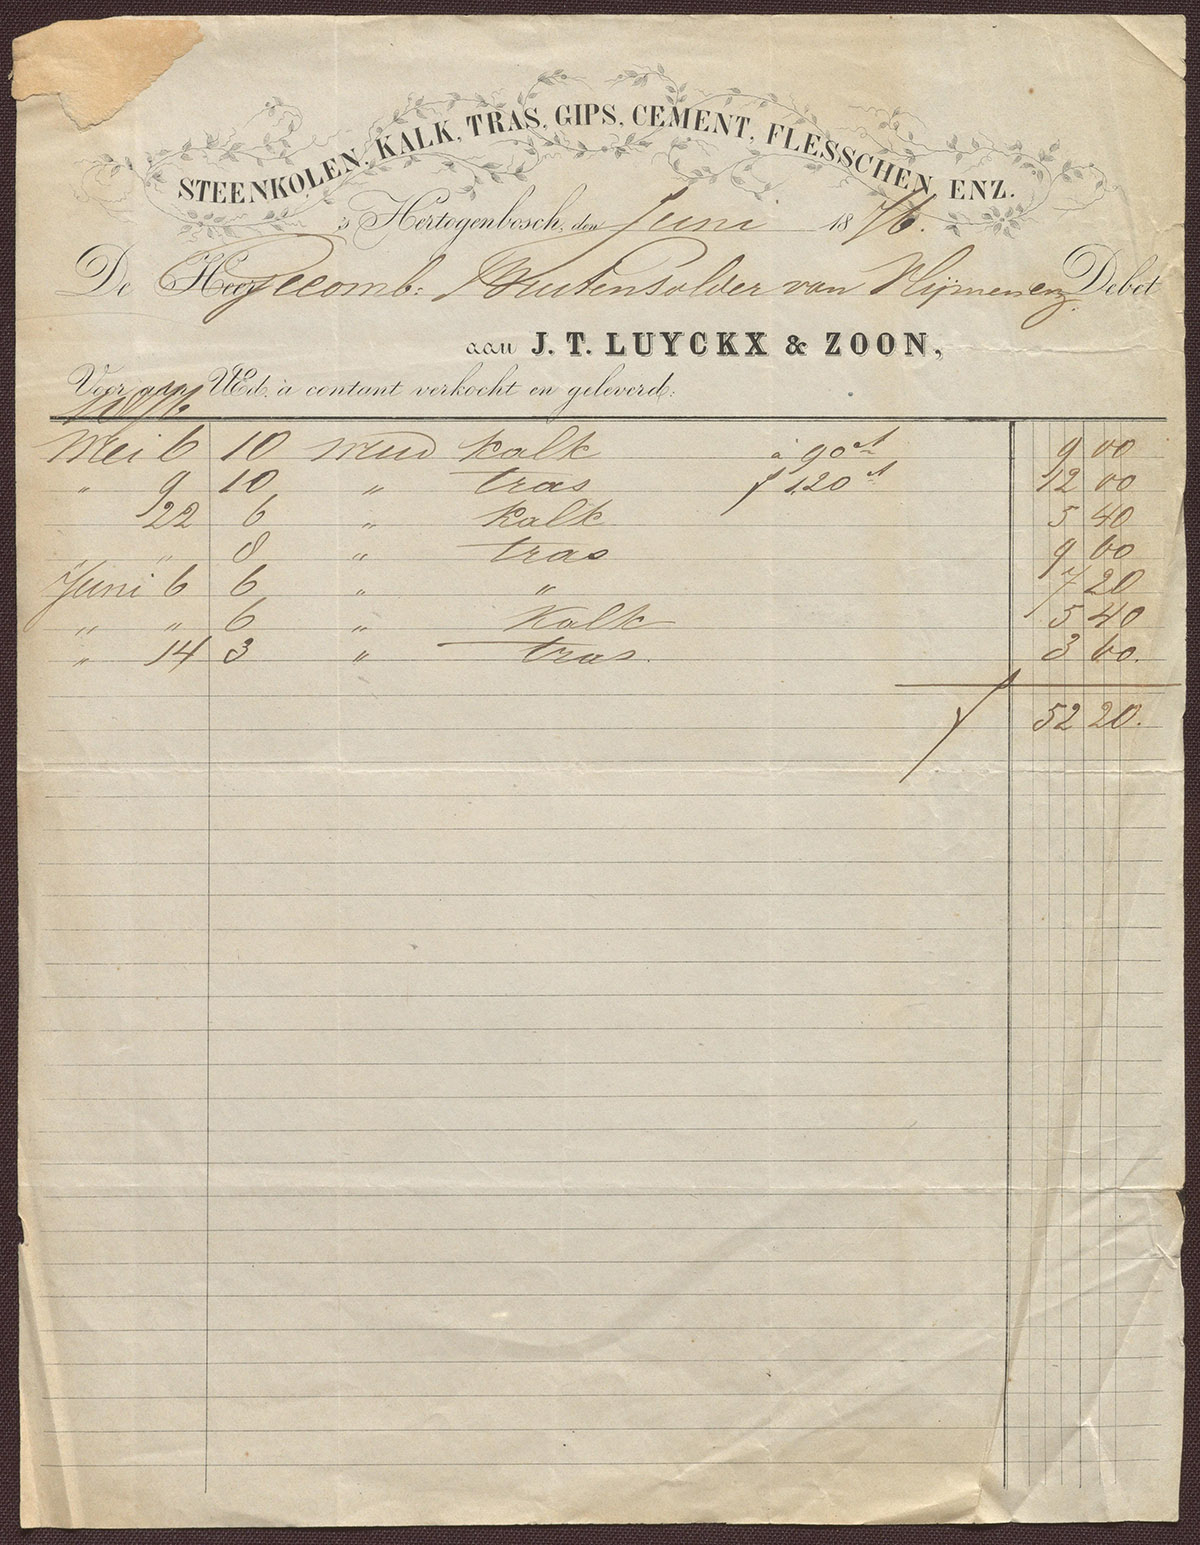 STEENKOLEN, KALK, TRAS, GIPS, CEMENT, FLESSCHEN, ENZ.
's Hertogenbosch, den Juni 1876.
De Heer Recomb: Buitensolder van Vlijmen enz. Debet
aan J. T. LUYCKX & ZOON,
Voor aan UEd. à contant verkocht en geleverd:
1876
Mei 6 10 mud kalk à 90 ct 9 00
" 9 10 " tras f 1.20 ct 12 00
22 6 " kalk 5 40
" 8 " tras 9 60
Juni 6 6 " " 7 20
" " 6 " Kalk 5 40
" 14 3 " tras. 3 60.
f 52 20.